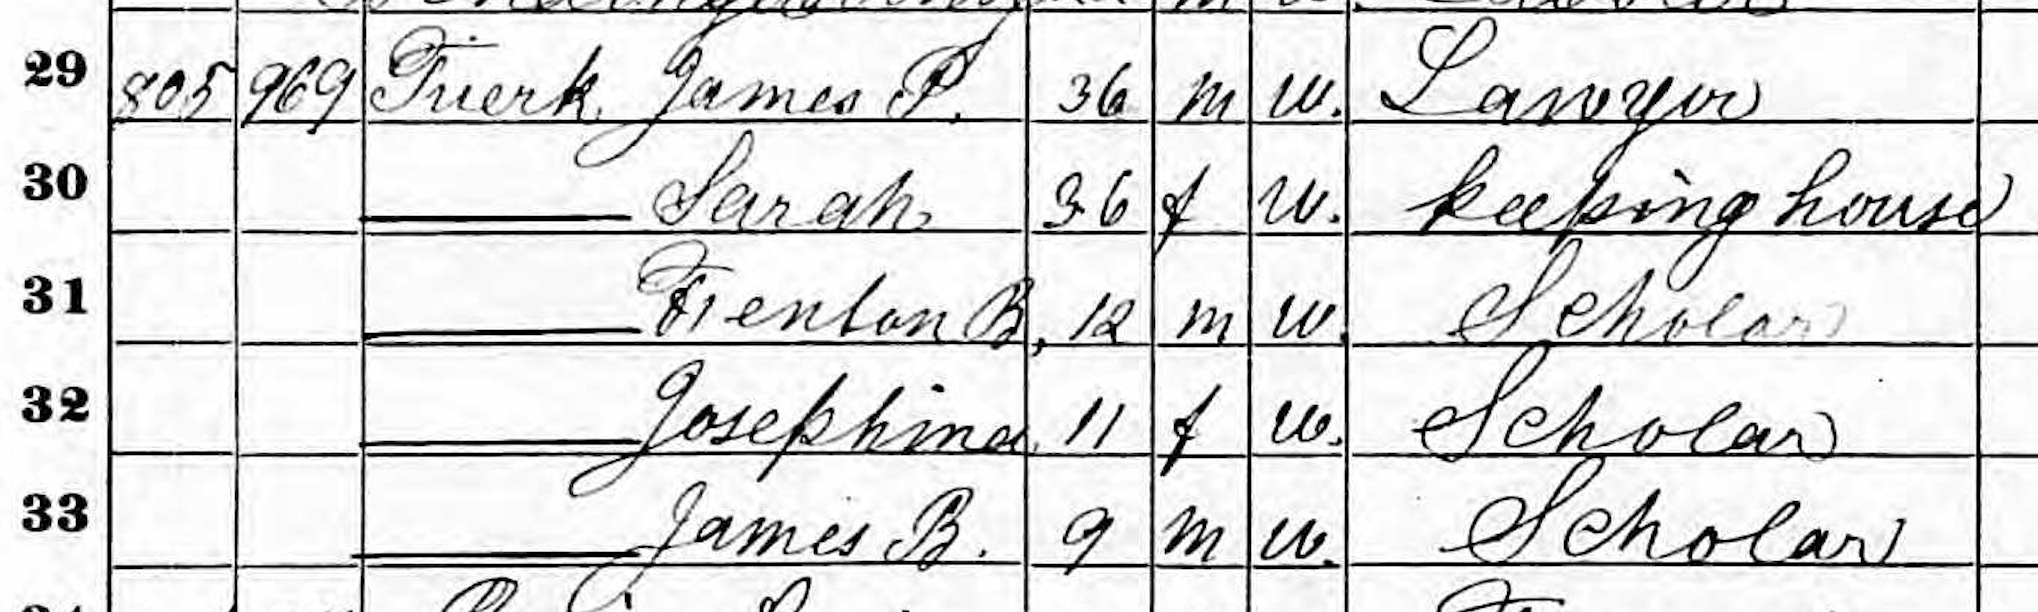 29 805 969 Tuerk, James P. 36 m w. Lawyer
30 —— Sarah 36 f w. keeping house
31 —— Fienton B, 12 m w. Scholar
32 —— Josephina 11 f w. Scholar
33 —— James B. 9 m w. Scholar